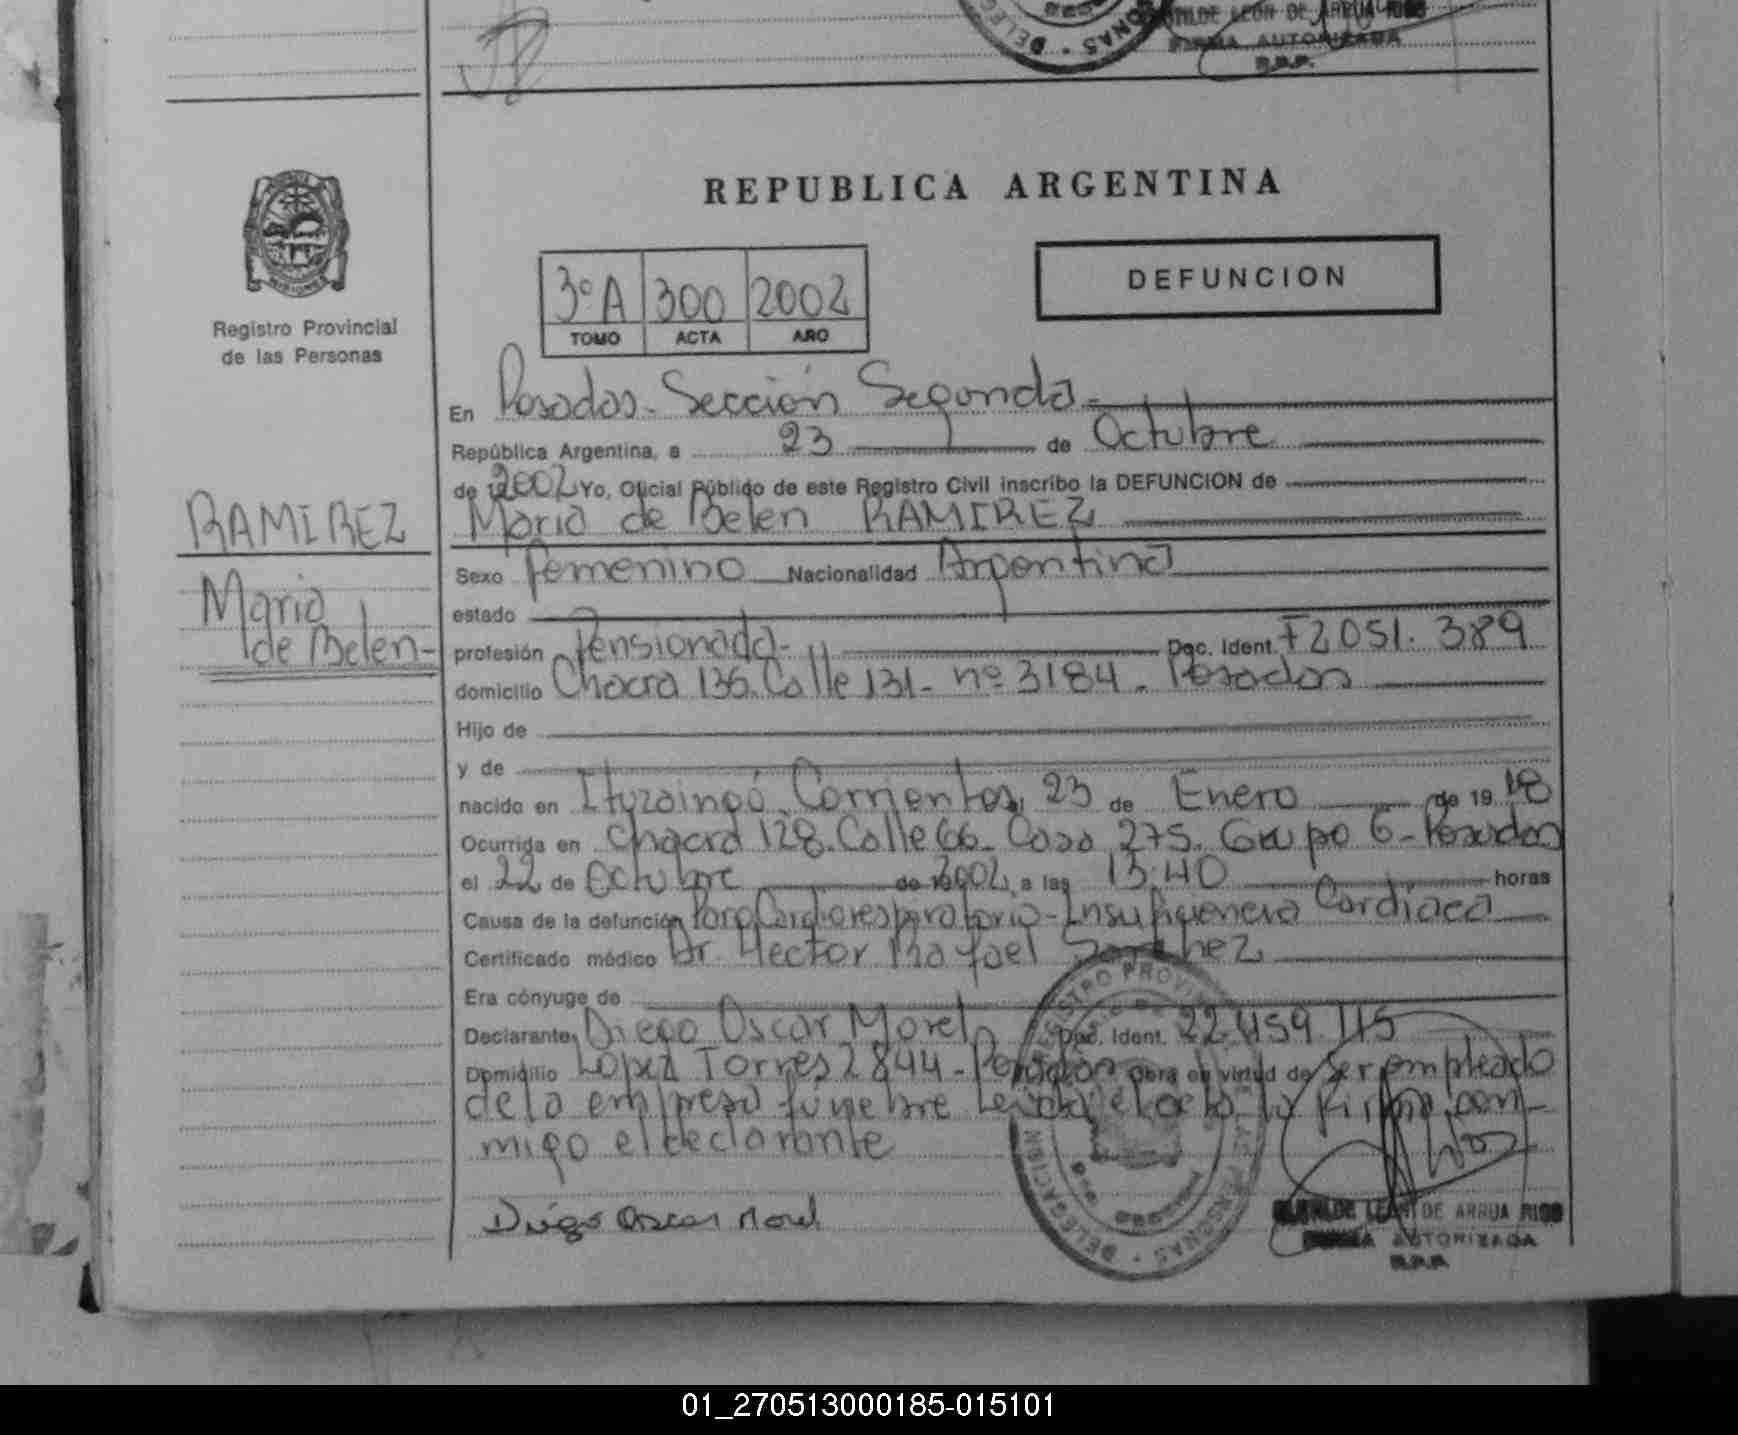 MATILDE LEÓN DE ARRUA RIOS
FIRMA AUTORIZADA
R.P.P.
REPUBLICA ARGENTINA
DEFUNCION
3º A 300 2002
TOMO ACTA AÑO
Registro Provincial
de las Personas
En Posadas - Sección Segunda -
República Argentina, a 23 de Octubre
de 2002 Yo, Oficial Público de este Registro Civil inscribo la DEFUNCION de
RAMIREZ
Maria de Belen RAMIREZ
Sexo femenino Nacionalidad Argentina
Maria
de Belen -
estado
profesión Pensionada - Doc. Ident. F2.051.389
domicilio Chacra 136. Calle 131 - nº 3184 - Posadas
Hijo de
y de
nacido en Ituzaingó, Corrientes, 23 de Enero de 19 18
Ocurrida en Chacra 128. Calle 66 - Casa 275. Grupo 6 - Posadas
el 22 de Octubre de 2002, a las 13:40 horas
Causa de la defunción Paro Cardiorespiratorio - Insuficiencia Cardiaca
Certificado médico Dr. Hector Rafael Sanchez
Era cónyuge de
Declarante Diego Oscar Morel Doc. Ident. 22.459.115
Domicilio Lopez Torres 2844 - Posadas Obra en virtud de Ser empleado
de la empresa funebre Leida el acta la firma con-
migo el declarante
Diego Oscar Morel
REGISTRO PROVINCIAL DE LAS PERSONAS · DELEGACION
LEÓN DE ARRUA RIOS
FIRMA AUTORIZADA
R.P.P.
01_270513000185-015101